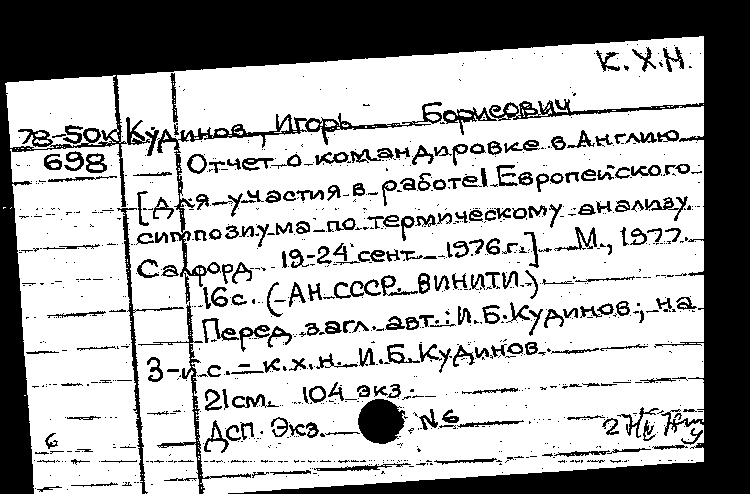 К.Х.Н.
78-50к Кудинов, Игорь Борисович
698 Отчет о командировке в Англию
[для участия в работе I Европейского
симпозиума по термическому анализу.
Салфорд 19-24 сент. 1976 г.] М., 1977.
16 с. (АН СССР. ВИНИТИ).
Перед загл. авт.: И.Б. Кудинов; на
3-й с. - к.х.н. И.Б. Кудинов.
21 см. 104 экз.
Дсп. Экз. № 6
6 2